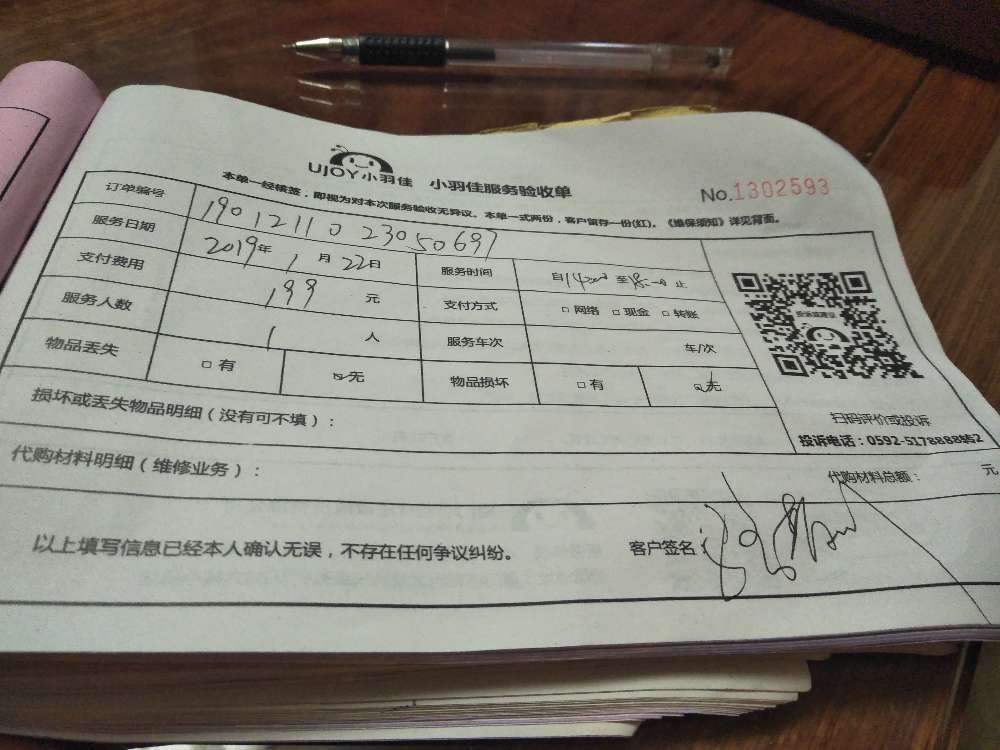 UJOY小羽佳 小羽佳服务验收单
No.1302593
本单一经核签，即视为对本次服务验收无异议。本单一式两份，客户留存一份(红)。《维保须知》详见背面。
订单编号 1901211023050697
服务日期 2019年1月22日 服务时间 自14:00至18:00止
支付费用 199元 支付方式 □网络 □现金 □转账
服务人数 1人 服务车次 车/次
物品丢失 □有 ☑无 物品损坏 □有 ☑无
投诉或建议
扫码评价或投诉
投诉电话：0592-5178888转2
损坏或丢失物品明细（没有可不填）：
代购材料明细（维修业务）： 代购材料总额： 元
以上填写信息已经本人确认无误，不存在任何争议纠纷。 客户签名：